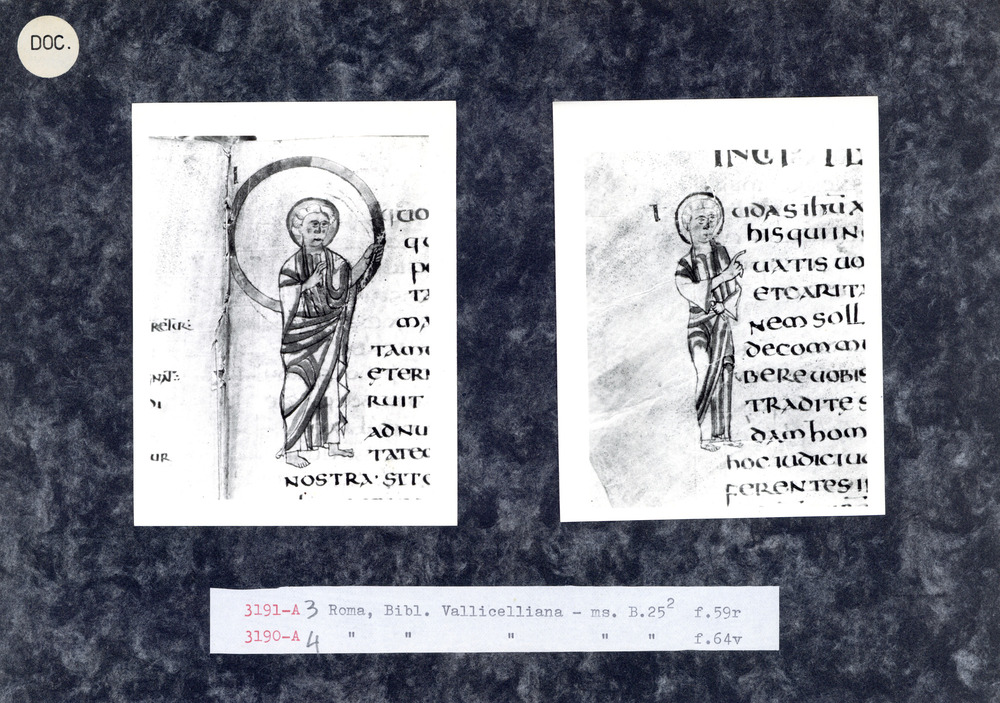 DOC.
QUO
TA
TAM
ETERI
RUIT
ADNU
TATEQ
NOSTRA· SITQ
UR
I
UDAS IHŪ X
HIS QUI IN
UATIS UO
ETCARITA
NEM SOLL
DECOMMI
BERE UOBIS
TRADITE S
DAM HOM
HOC IUDICIU
FERENTES
3191-A 3 Roma, Bibl. Vallicelliana - ms. B.25² f.59r
3190-A 4 " " " " " f.64v